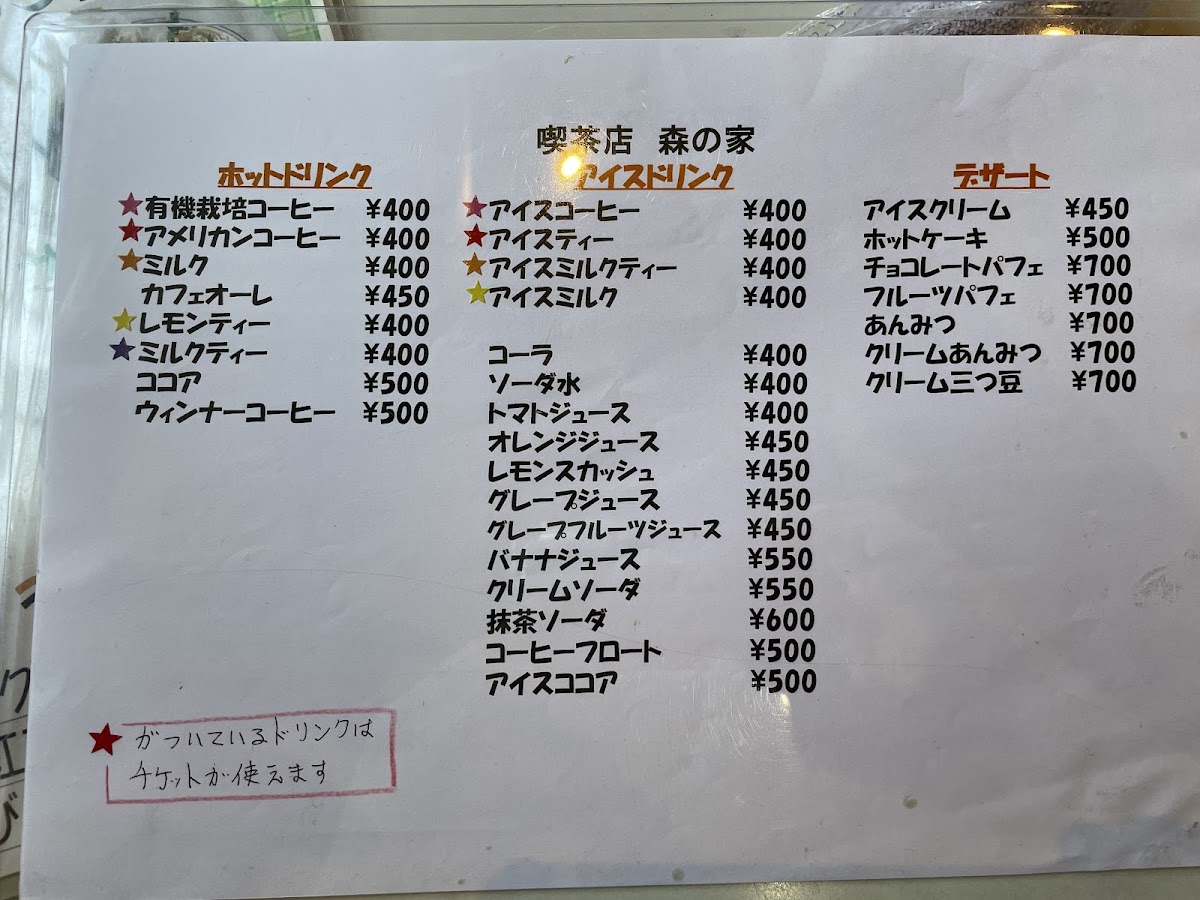 喫茶店 森の家
ホットドリンク
★有機栽培コーヒー ¥400
★アメリカンコーヒー ¥400
★ミルク ¥400
カフェオーレ ¥450
★レモンティー ¥400
★ミルクティー ¥400
ココア ¥500
ウィンナーコーヒー ¥500
アイスドリンク
★アイスコーヒー ¥400
★アイスティー ¥400
★アイスミルクティー ¥400
★アイスミルク ¥400
コーラ ¥400
ソーダ水 ¥400
トマトジュース ¥400
オレンジジュース ¥450
レモンスカッシュ ¥450
グレープジュース ¥450
グレープフルーツジュース ¥450
バナナジュース ¥550
クリームソーダ ¥550
抹茶ソーダ ¥600
コーヒーフロート ¥500
アイスココア ¥500
デザート
アイスクリーム ¥450
ホットケーキ ¥500
チョコレートパフェ ¥700
フルーツパフェ ¥700
あんみつ ¥700
クリームあんみつ ¥700
クリーム三つ豆 ¥700
★がついているドリンクは
チケットが使えます